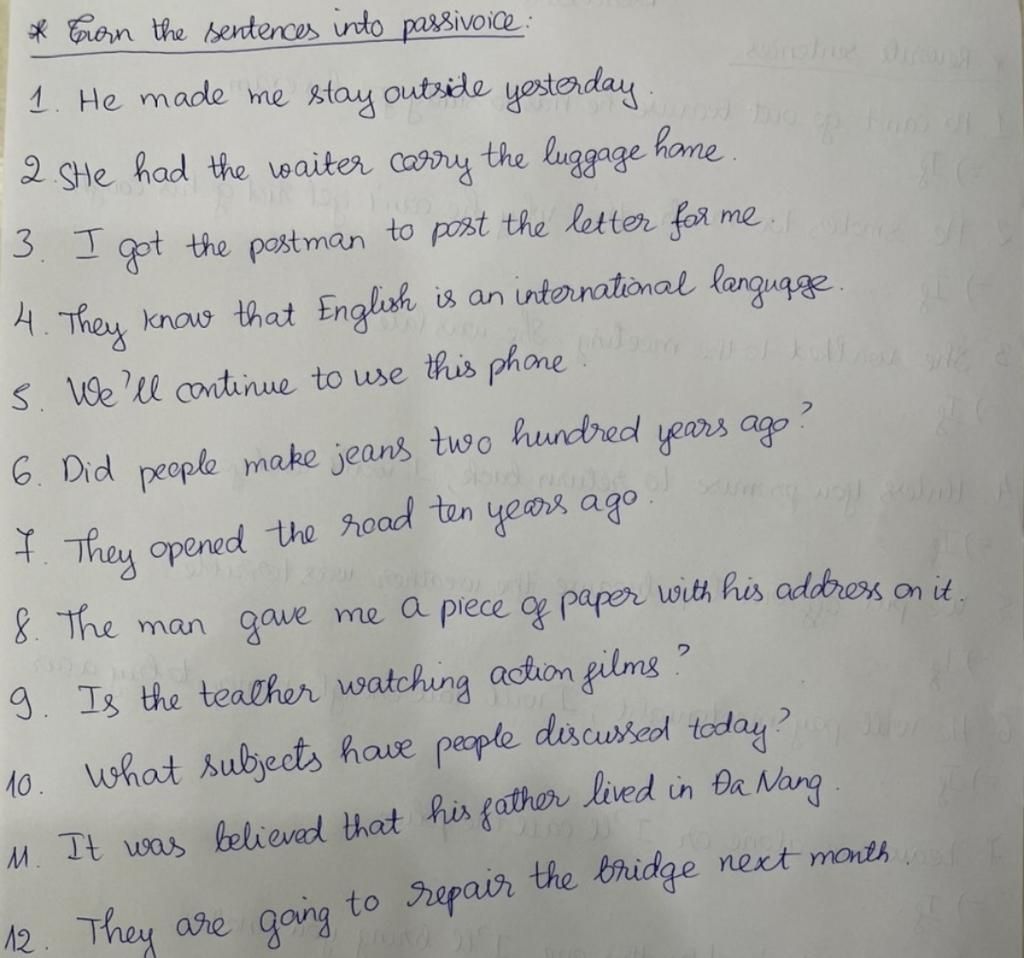 * Turn the sentences into passivoice:
1. He made me stay outside yesterday.
2. SHe had the waiter carry the luggage home.
3. I got the postman to post the letter for me.
4. They know that English is an international language.
5. We'll continue to use this phone.
6. Did people make jeans two hundred years ago?
7. They opened the road ten years ago.
8. The man gave me a piece of paper with his address on it.
9. Is the teacher watching action films?
10. What subjects have people discussed today?
11. It was believed that his father lived in Đa Nang.
12. They are going to repair the bridge next month.